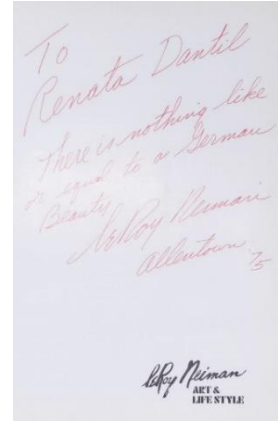 To
Renata Dantil
There is nothing like
or equal to a German
Beauty
LeRoy Neiman
Allentown '75
LeRoy Neiman
ART &
LIFE STYLE